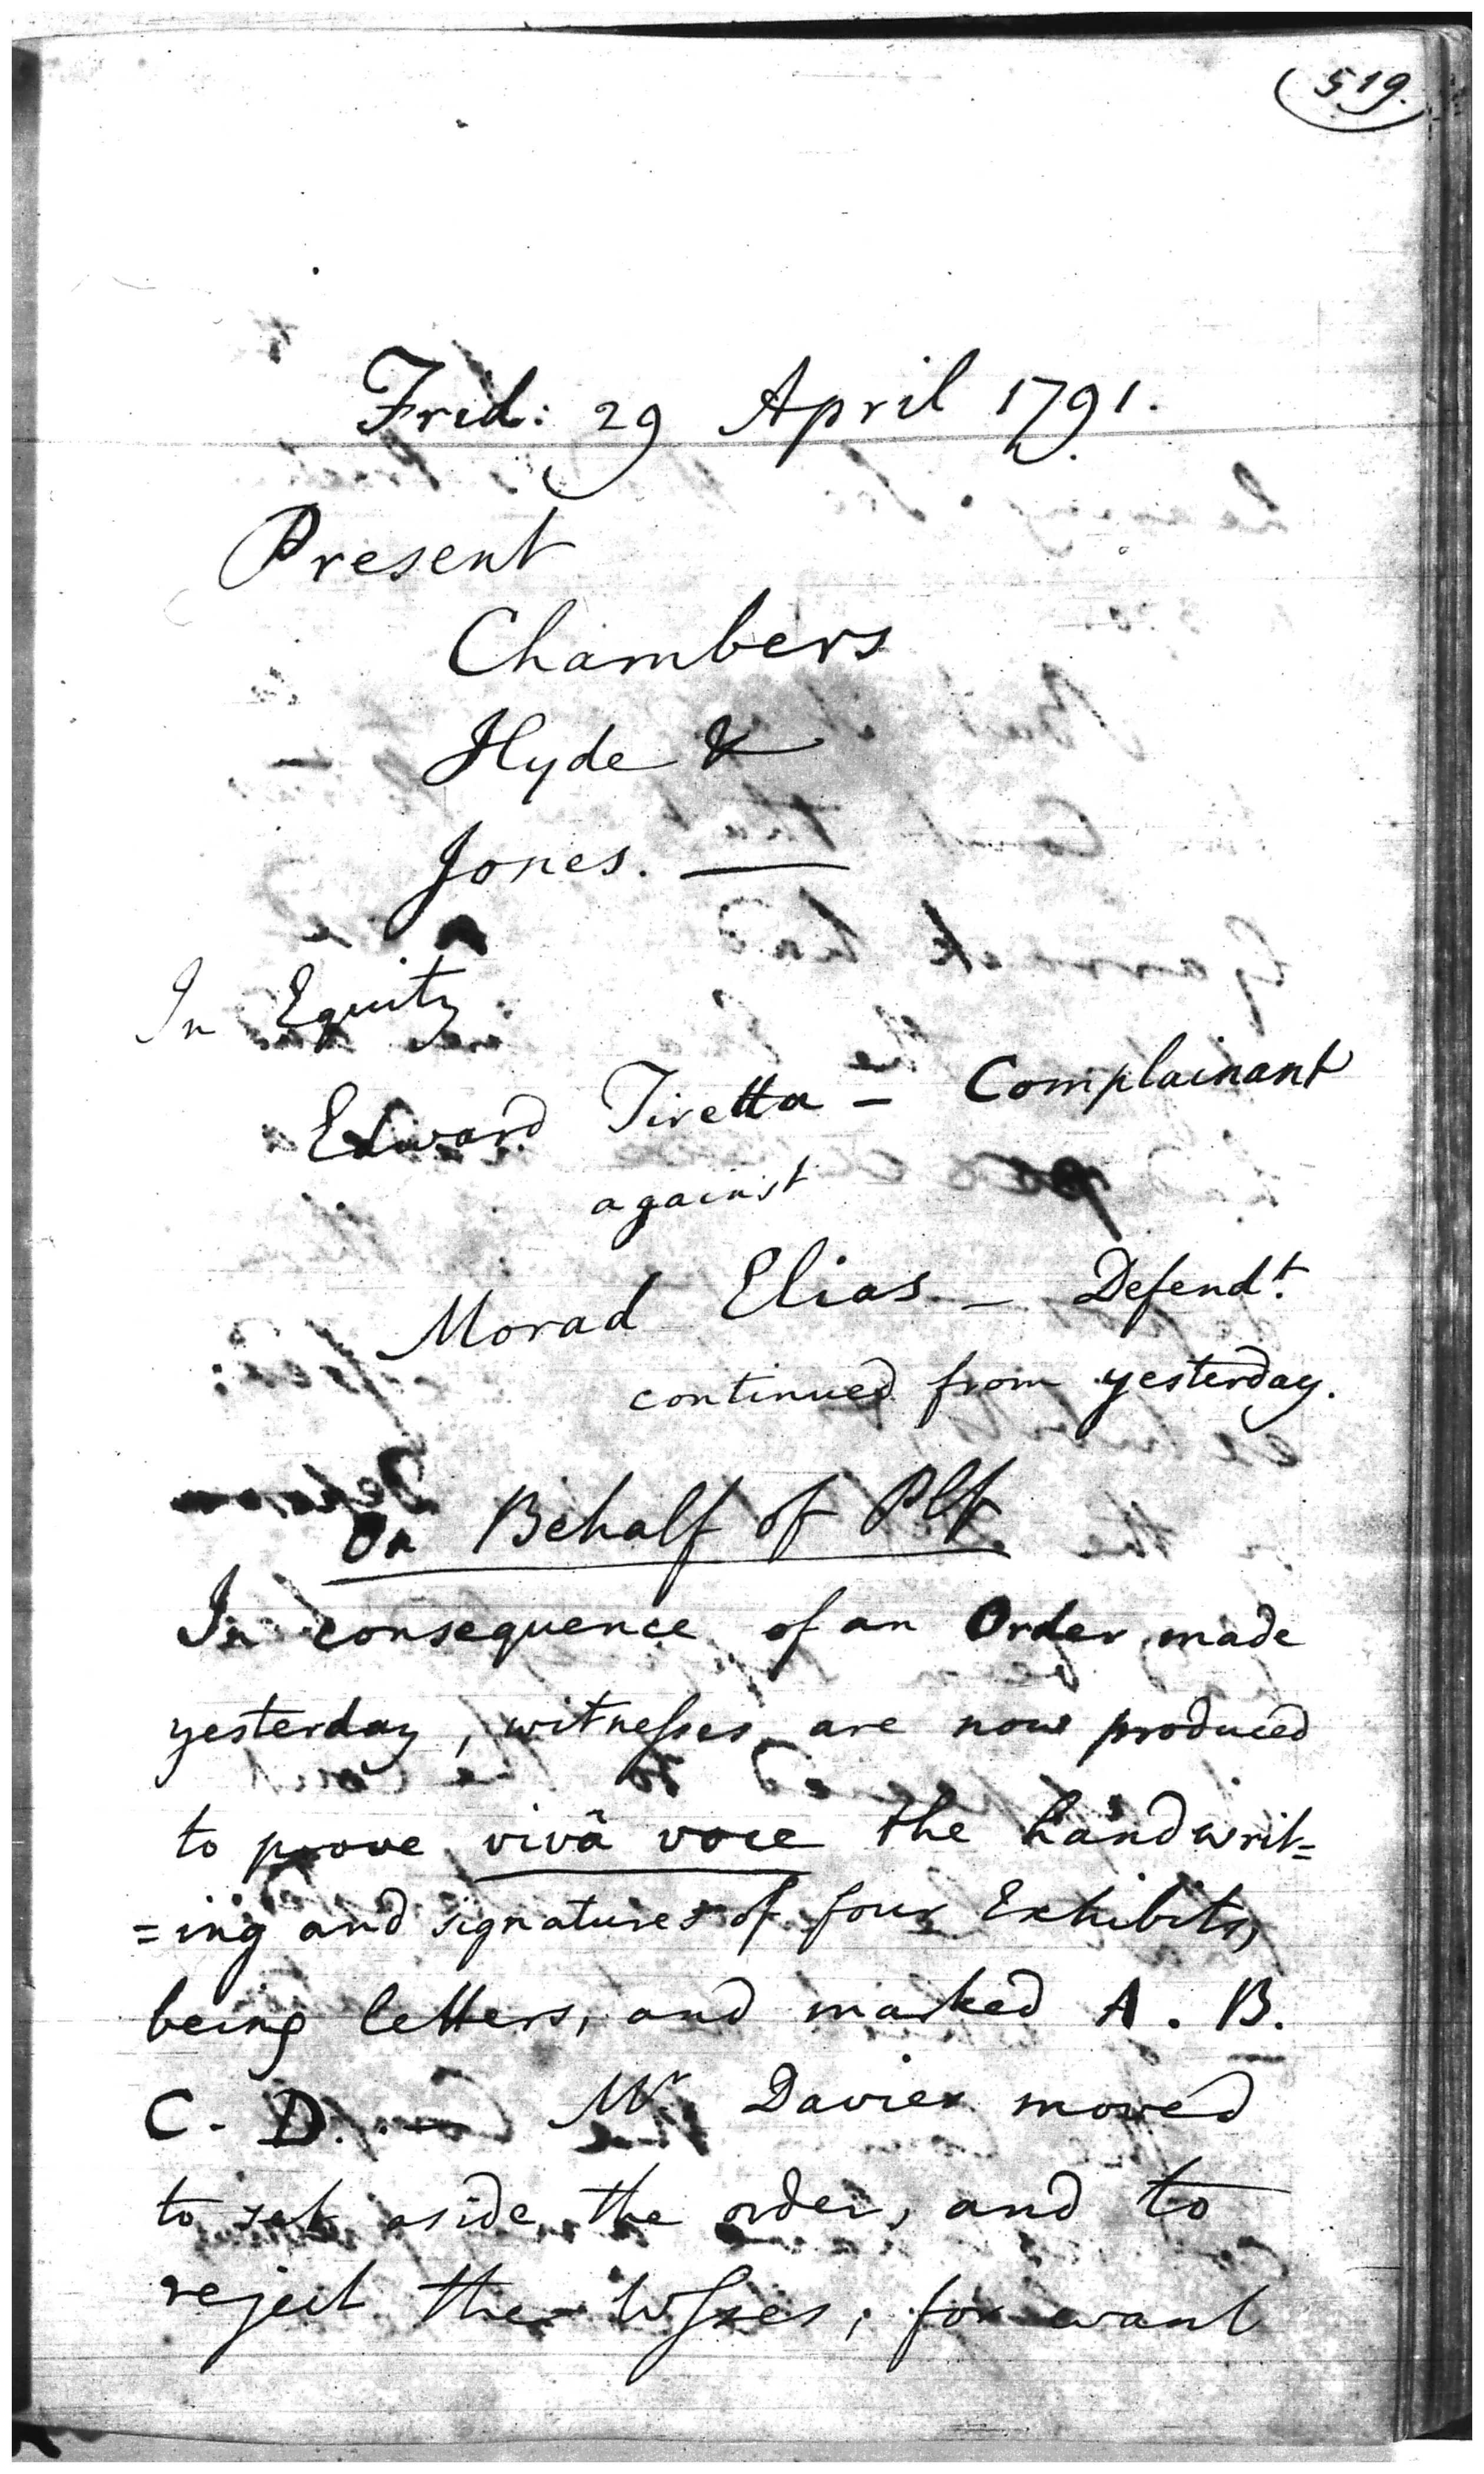 519.
Frid: 29 April 1791.
Present
Chambers
Hyde &
Jones. —
In Equity
Edward Tiretta — Complainant
against
Morad Elias — Defendt.
continued from yesterday.
On Behalf of Plf
In consequence of an Order made
yesterday, witnesses are now produced
to prove vivâ voce the handwrit=
=ing and signatures of four Exhibits,
being letters, and marked A. B.
C. D. — Mr Davies moved
to set aside the order, and to
reject the Wsses; for want